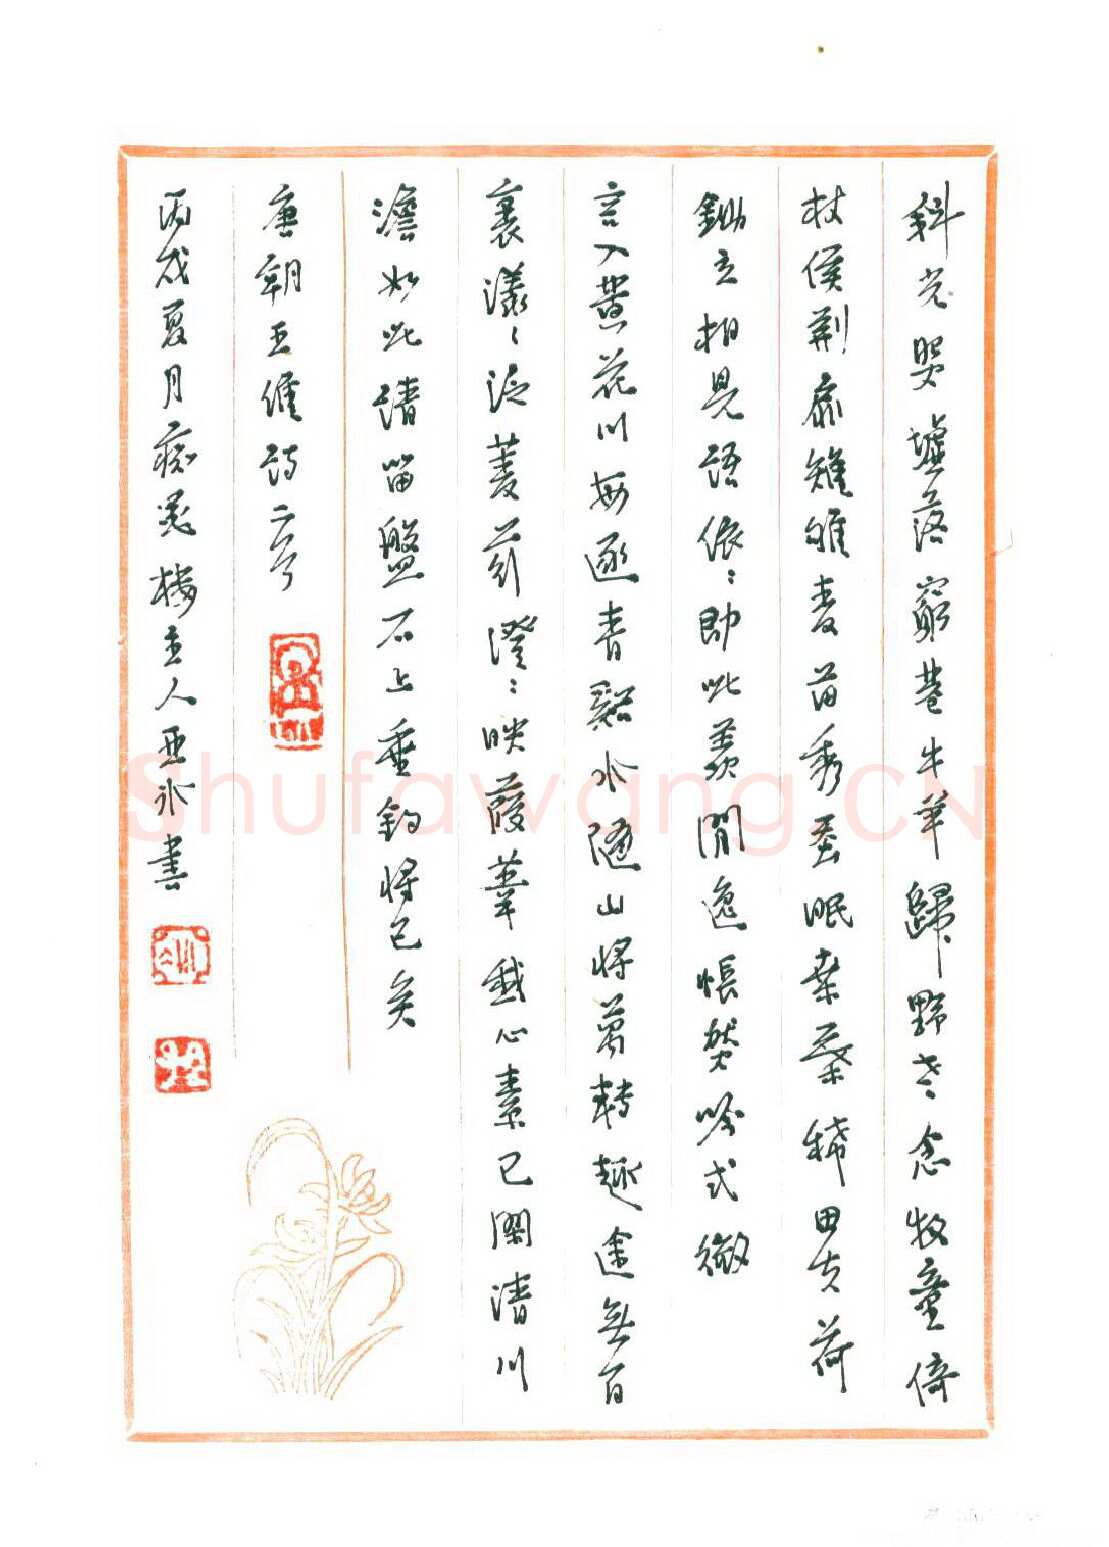 斜光照墟落窮巷牛羊歸野老念牧童倚
杖候荊扉雉雊麥苗秀蚕眠桑葉稀田夫荷
鋤立相見語依〻即此羨閒逸悵然吟式微
言入黃花川每逐青谿水隨山將萬轉趣途無百
裏漾〻泛菱荇澄〻映葭葦我心素已閑清川
澹如此請留盤石上垂釣將已矣
唐朝王維詩二首
丙戌夏月痴樓主人亞冰書
Shufawang.CN